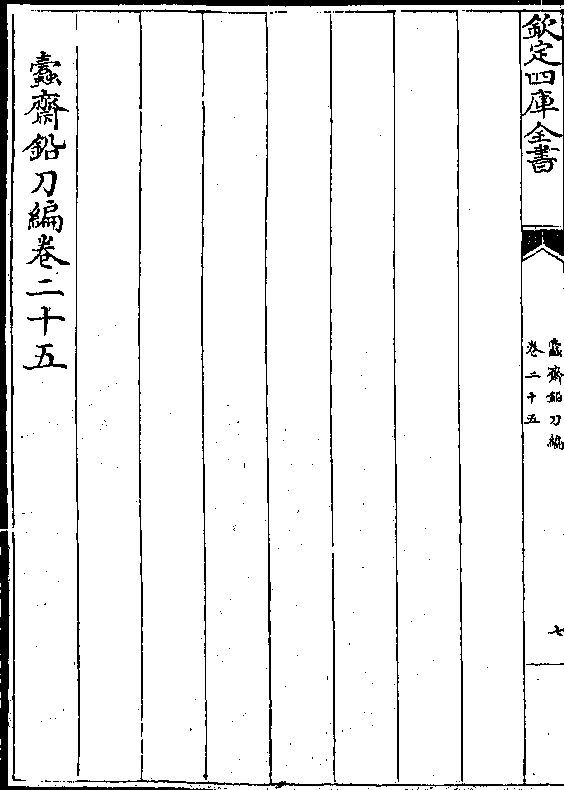 欽定四庫全書
蠹齋鉛刀編
卷二十五
七
蠹齋鉛刀編卷二十五